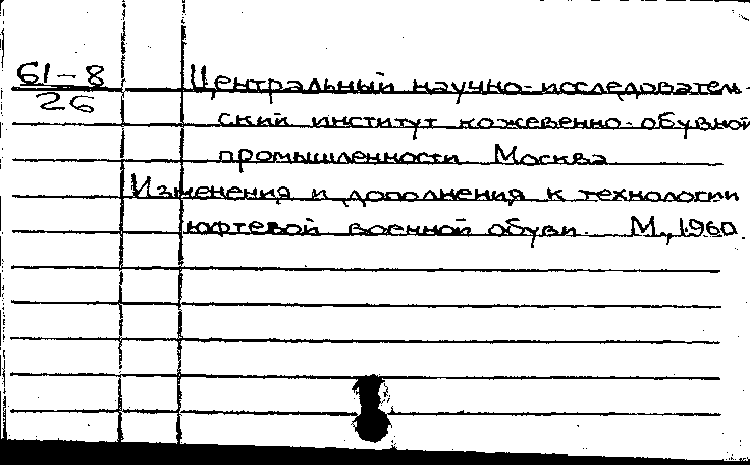 61-8
26
Центральный научно-исследователь-
ский институт кожевенно-обувной
промышленности Москва
Изменения и дополнения к технологии
юфтевой военной обуви. М., 1960.